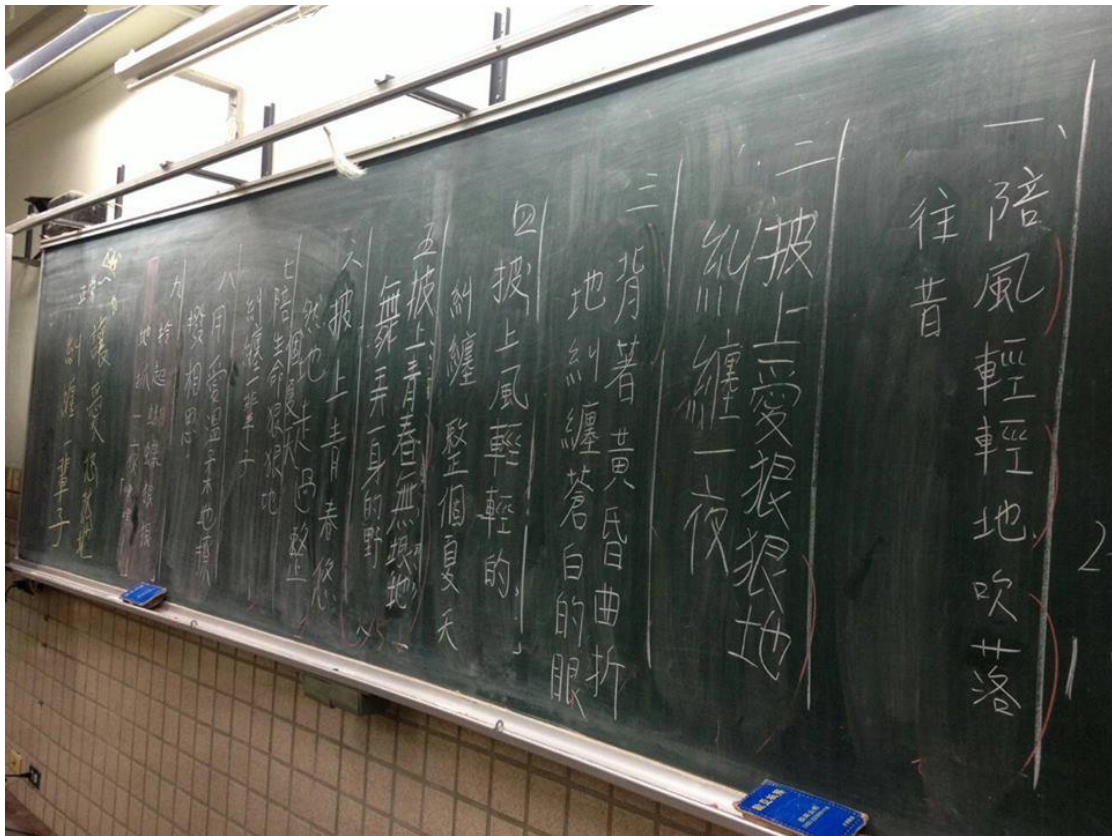 一、
陪風輕輕地吹落
往昔
21
二
披上愛狠狠地
糾纏一夜
三
背著黃昏曲折
地糾纏蒼白的眼
四
披上風輕輕的
糾纏整個夏天
五披上青春無想地
舞弄一身的野
六披上青春悠
然地走過整
個夏天
七陪青春狠狠地
糾纏一輩子
八用愛溫柔地擦
撥相思
九拾起
地抓一
讓愛
糾纏一輩子